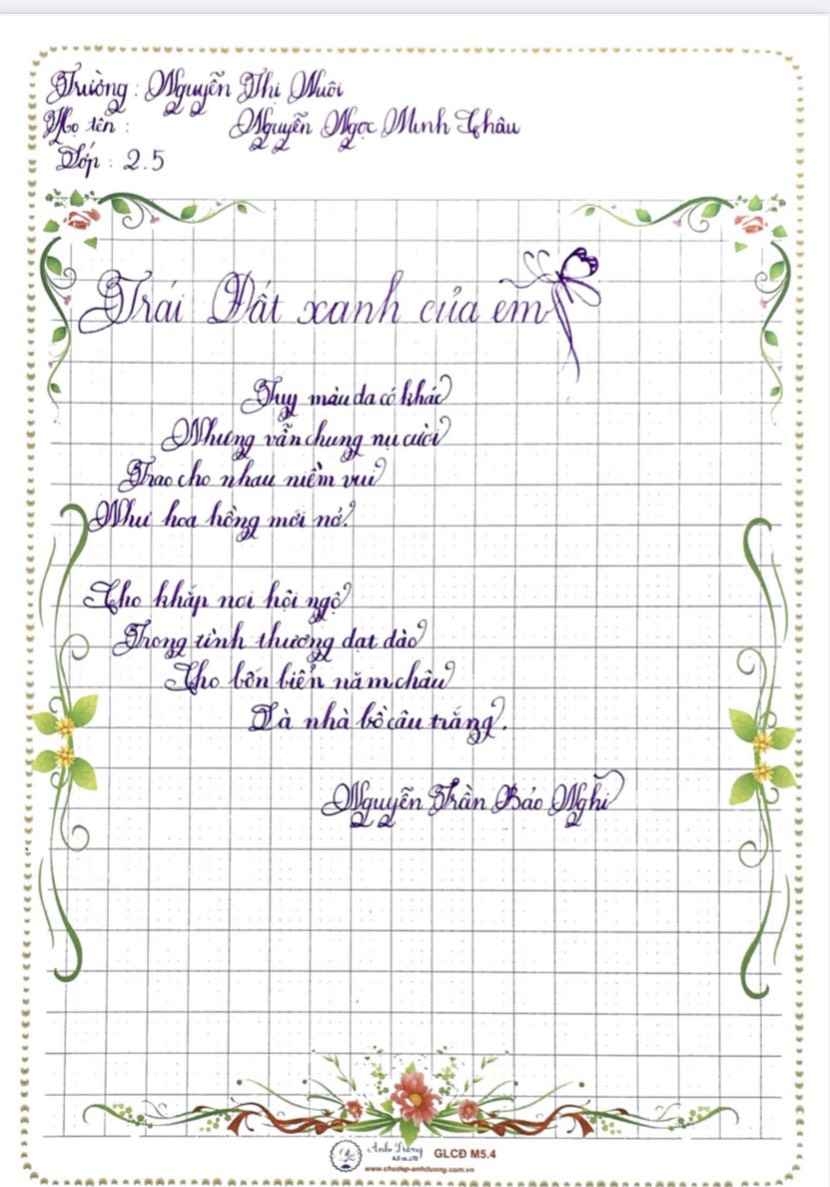 Trường : Nguyễn Thị Nuôi
Họ tên : Nguyễn Ngọc Minh Châu
Lớp : 2.5
Trái Đất xanh của em
Tuy màu da có khác
Nhưng vẫn chung nụ cười
Trao cho nhau niềm vui
Như hoa hồng mới nở.
Cho khắp nơi hội ngộ
Trong tình thương dạt dào
Cho bốn biển năm châu
Là nhà bồ câu trắng.
Nguyễn Trần Bảo Nghi
Ánh Dương GLCĐ M5.4
www.chudep-anhduong.com.vn